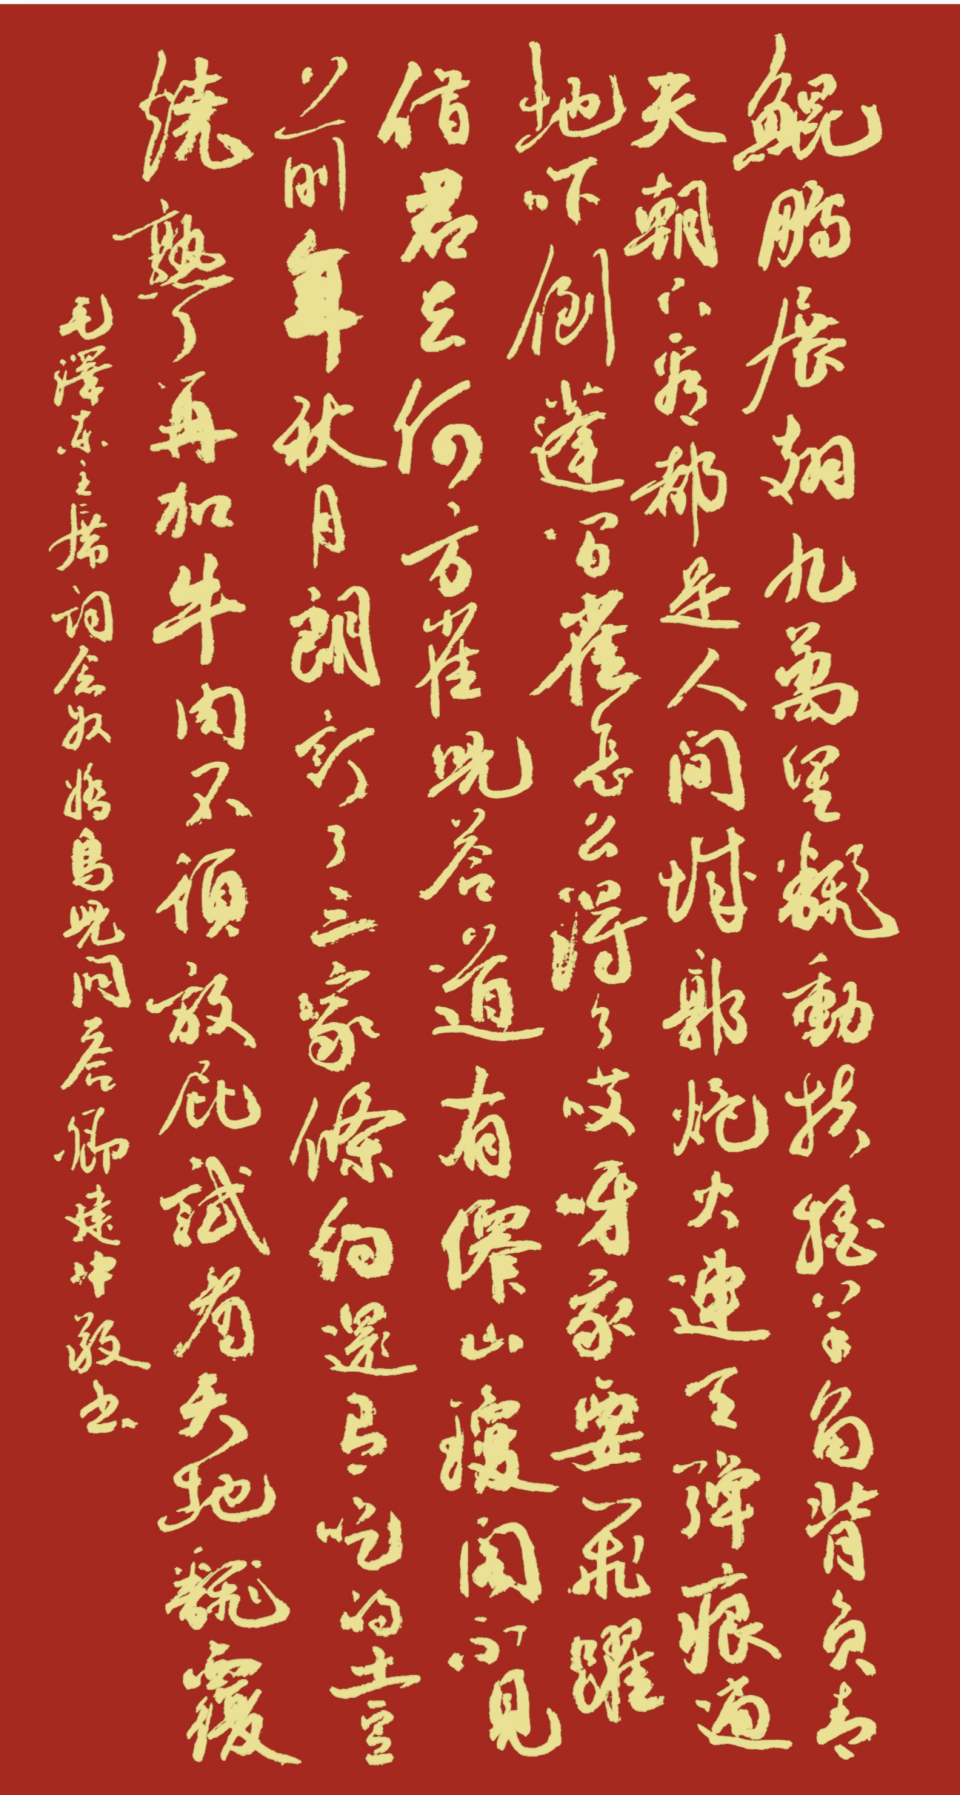 鯤鵬展翅九萬里翻動扶搖羊角背負青
天朝下看都是人間城郭炮火連天彈痕遍
地吓倒蓬間雀怎么得了哎呀我要飛躍
借君去何方雀兒答道有僊山瓊閣不見
前年秋月朗訂了三家條約還有吃的土豆
燒熟了再加牛肉不須放屁試看天地翻覆
毛澤東主席詞念奴嬌鳥兒問答卿建中敬书